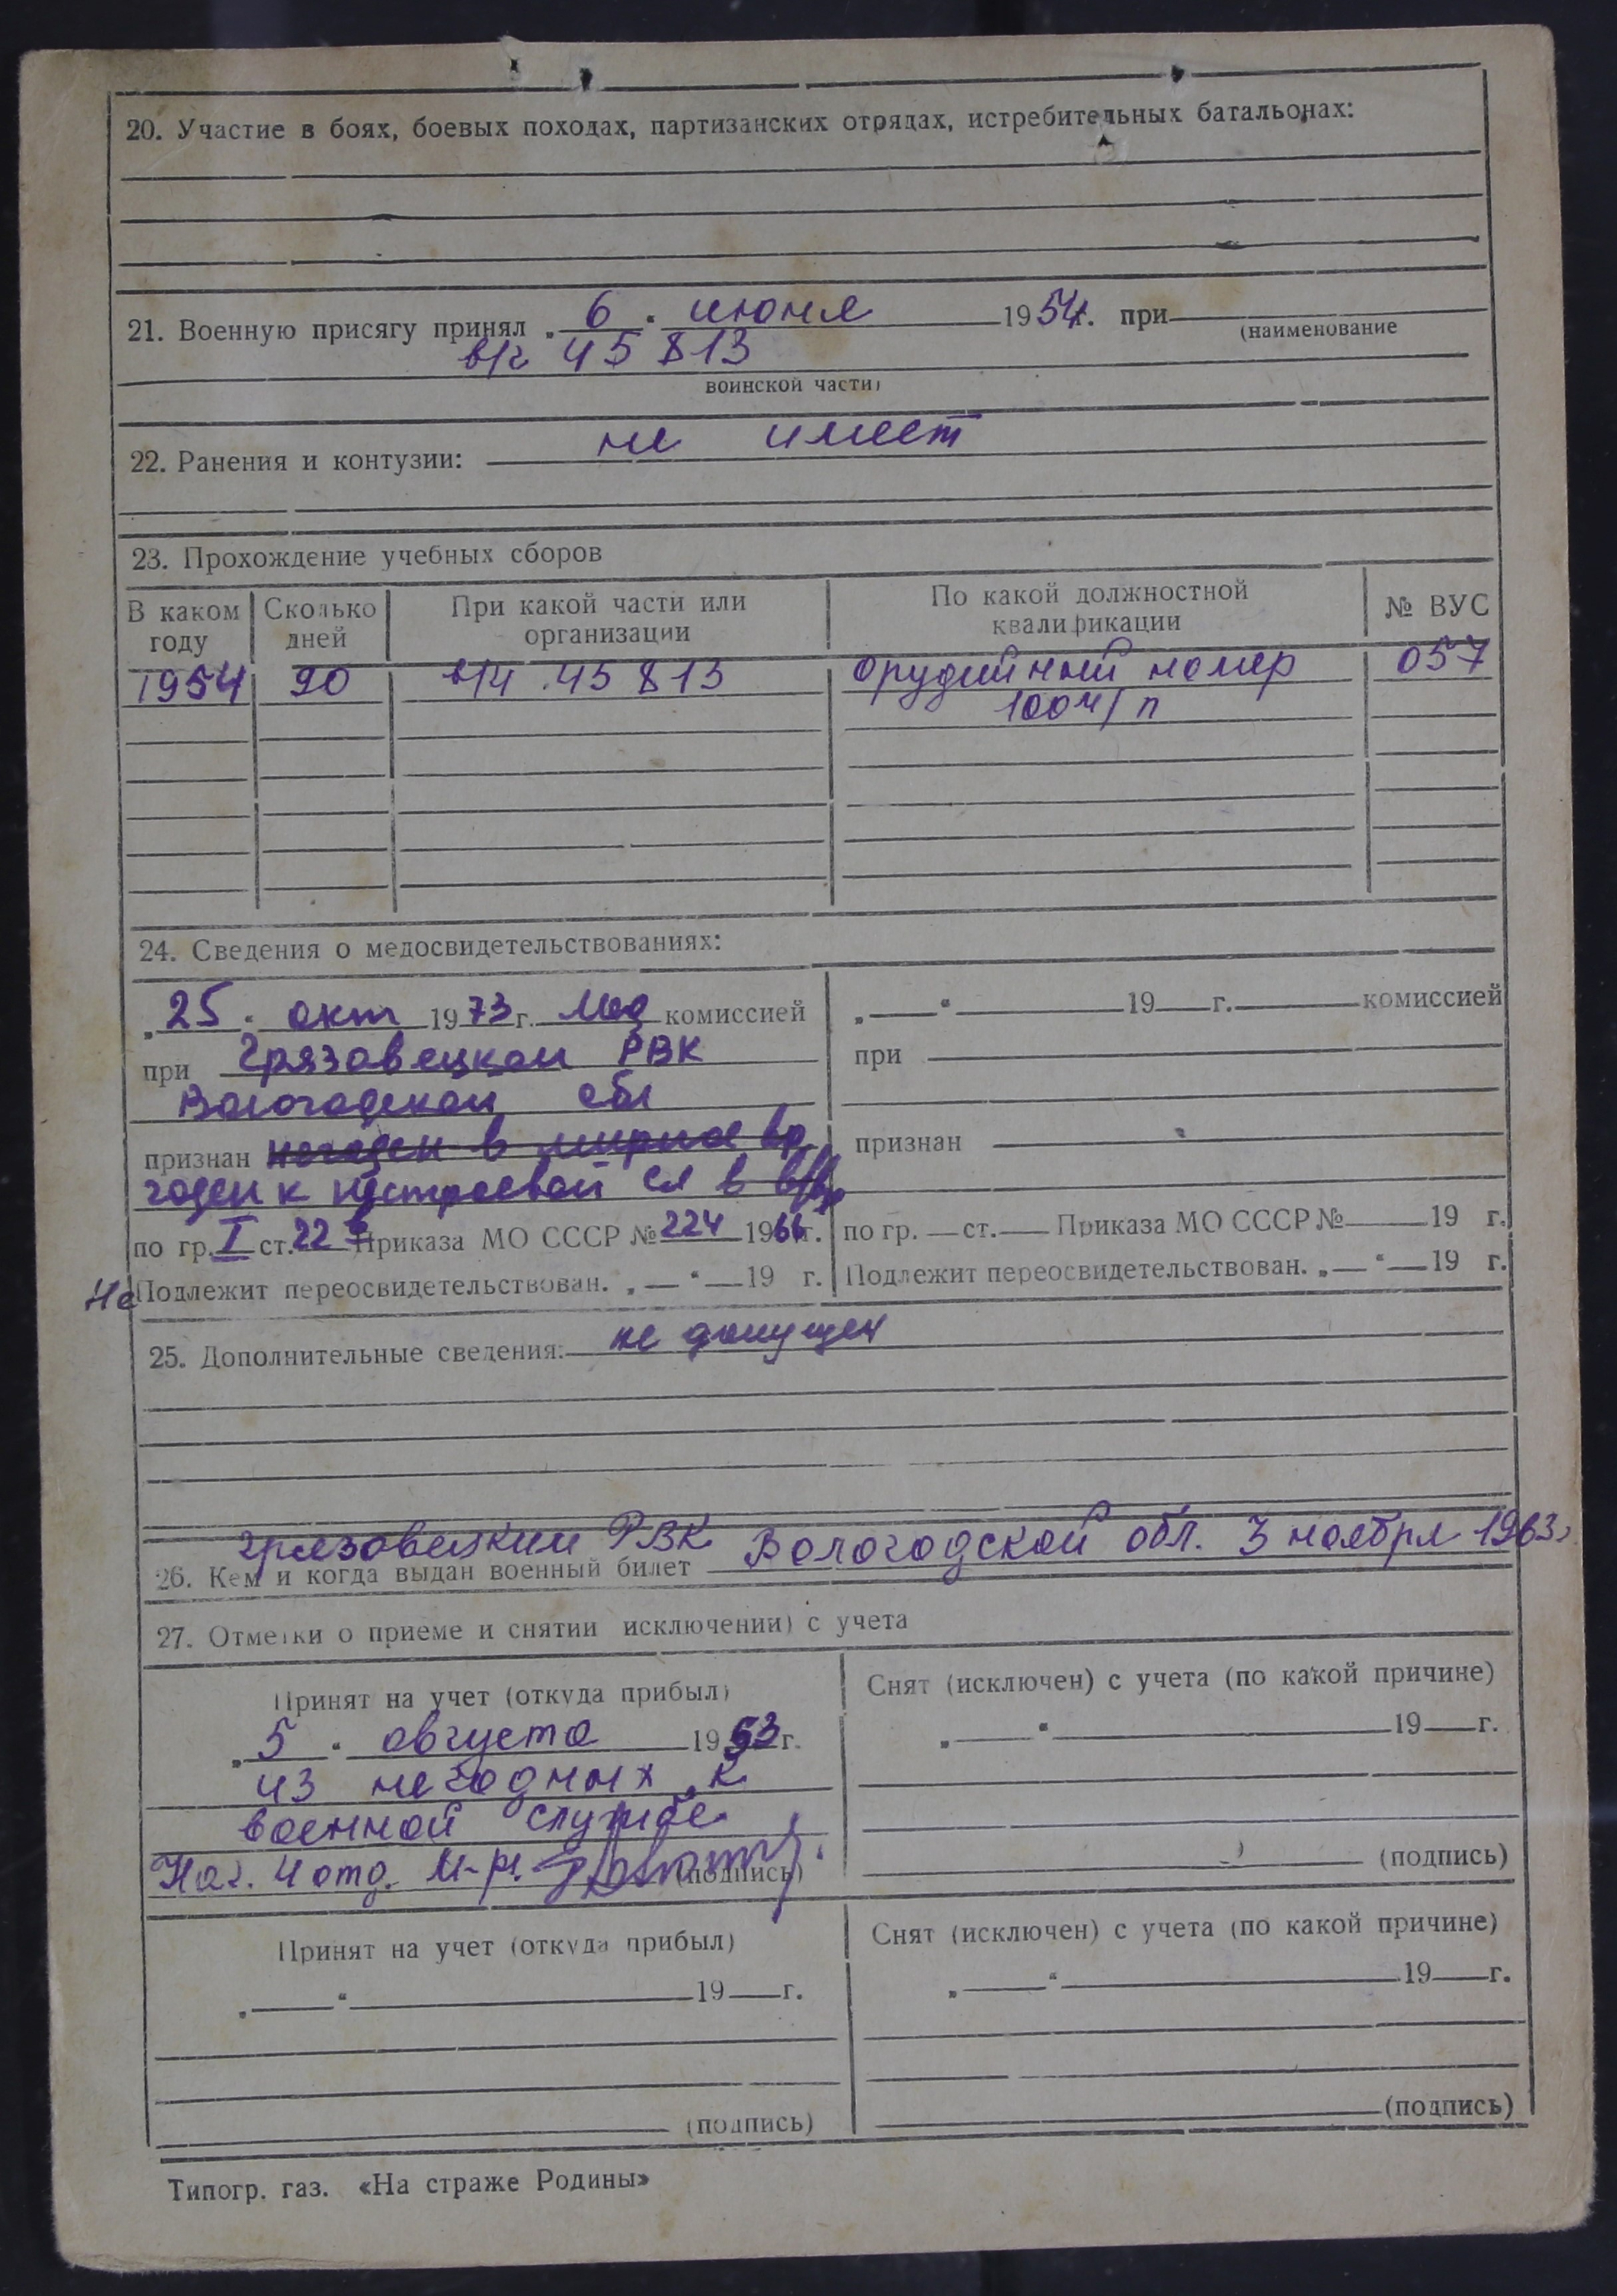 20. Участие в боях, боевых походах, партизанских отрядах, истребительных батальонах:
21. Военную присягу принял „ 6 " июня 1954г. при
(наименование
в/ч 45813
воинской части)
22. Ранения и контузии: не имеет
23. Прохождение учебных сборов
В каком году Сколько дней При какой части или организации По какой должностной квалификации № ВУС
1954 90 в/ч 45813 орудийный номер 057
100 м/п
24. Сведения о медосвидетельствованиях:
„ 25 " окт 1973 г. Мед комиссией
при Грязовецком РВК
Вологодской обл
признан негоден в мирное вр
годен к нестроевой сл в в/вр
по гр. I ст. 22 Приказа МО СССР № 224 1966г.
Не Подлежит переосвидетельствован. „ " 19 г.
„ " 19 г. комиссией
при
признан
по гр. ст. Приказа МО СССР № 19 г.
Подлежит переосвидетельствован. „ " 19 г.
25. Дополнительные сведения: не допущен
Грязовецким РВК Вологодской обл. 3 ноября 1963г
26. Кем и когда выдан военный билет
27. Отметки о приеме и снятии исключении) с учета
Принят на учет (откуда прибыл)
„ 5 " августа 1953 г.
из негодных к
военной службе
Нач. 4 отд. м-р.
(подпись)
Снят (исключен) с учета (по какой причине)
„ " 19 г.
(подпись)
Принят на учет (откуда прибыл)
„ " 19 г.
(подпись)
Снят (исключен) с учета (по какой причине)
„ " 19 г.
(подпись)
Типогр. газ. «На страже Родины»